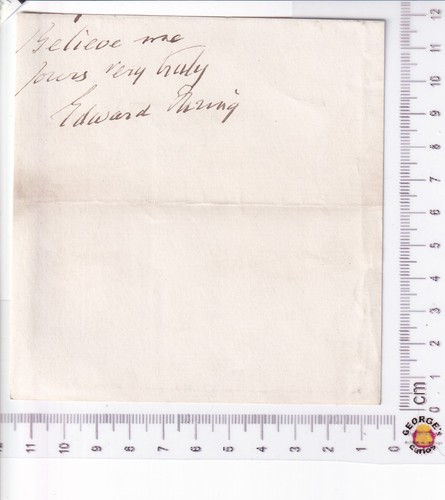 Believe me
yours very truly
Edward Thring
12
11
10
9
8
7
6
5
4
3
2
1
0
cm
11
10
9
8
7
6
5
4
3
2
1
0
GEORGE'S
Curios